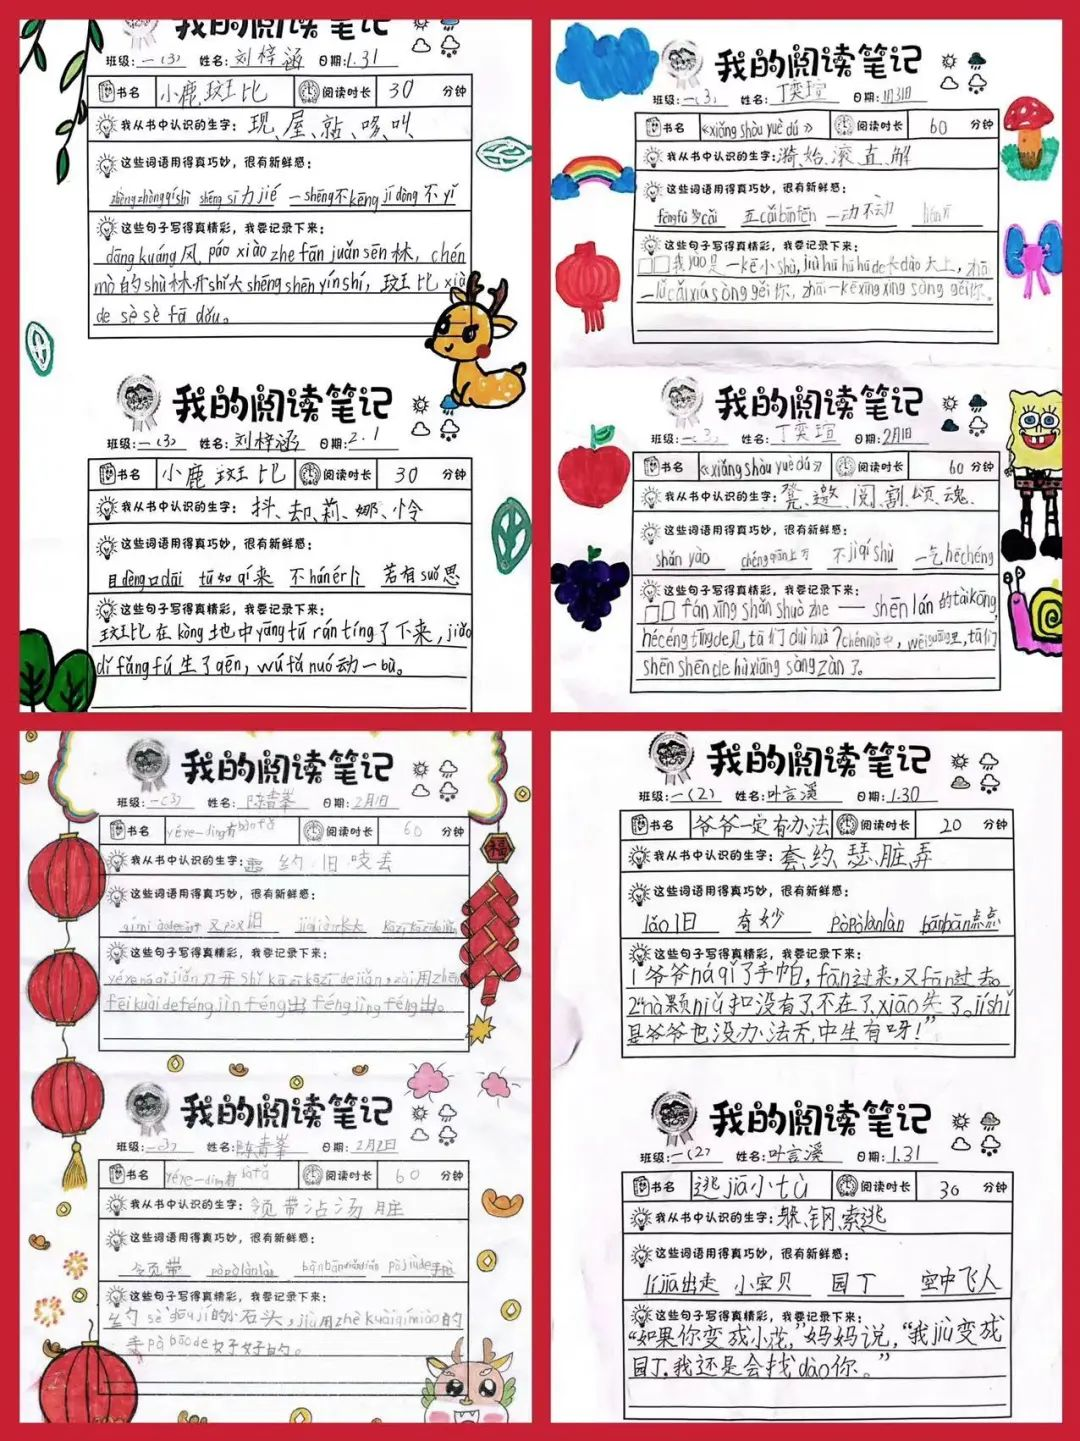 我的阅读笔记
班级:一(3) 姓名:刘梓涵 日期:1.31
书名 小鹿斑比 阅读时长 30 分钟
我从书中认识的生字: 现、屋、站、哆、叫
这些词语用得真巧妙，很有新鲜感:
zhèngzhòngqíshì shēng sī力jié 一shēng不kēng jī dòng 不 yǐ
这些句子写得真精彩，我要记录下来:
dāng kuáng风 páo xiào zhe fān juǎn sēn林，chén
mò的shù林开shǐ大shēng shēn yín shí，斑比 xià
de sè sè fā dǒu。
我的阅读笔记
班级:一(3) 姓名:刘梓涵 日期:2.1
书名 小鹿斑比 阅读时长 30 分钟
我从书中认识的生字: 抖、却、莉、娜、怜
这些词语用得真巧妙，很有新鲜感:
目dèng口dāi tū如qí来 不hánér lì 若有suǒ思
这些句子写得真精彩，我要记录下来:
斑比在kòng地中yāng tū rán tíng了下来，jiǎo
dǐ fǎng fú 生了gēn，wú fǎ nuó动一bù。
我的阅读笔记
班级:一(3) 姓名:丁奕瑄 日期:1月31日
书名 《xiǎng shòu yuè dú》 阅读时长 60 分钟
我从书中认识的生字: 漪、始、滚、直、解
这些词语用得真巧妙，很有新鲜感:
fēngfù 多cǎi 五cǎi bīn fēn 一动不动
这些句子写得真精彩，我要记录下来:
我yào是一kē小shù，jiù hū hū hū de长dào天上，zhāi
一lǚ cǎi xiá sòng gěi你，zhāi一kē xīng xīng sòng gěi你。
我的阅读笔记
班级:一(3) 姓名:丁奕瑄 日期:2月1日
书名 《xiǎng shòu yuè dú》 阅读时长 60 分钟
我从书中认识的生字: 凳、邀、阅、割、颂、魂
这些词语用得真巧妙，很有新鲜感:
shǎn yào chéng qiān上万 不jì qí shù 一气hē chéng
这些句子写得真精彩，我要记录下来:
fán xīng shǎn shuò zhe —— shēn lán 的tài kōng
hé céng tīng de见，tā们duì huà? chén mò中，wēi guāng里，tā们
shēn shēn de hù xiāng sòng zàn了。
我的阅读笔记
班级:一(3) 姓名:陈青峯 日期:2月1日
书名 yéye一dìng有bàn fǎ 阅读时长 60 分钟
我从书中认识的生字: 约 旧 吱 丢
这些词语用得真巧妙，很有新鲜感:
又pò又旧
这些句子写得真精彩，我要记录下来:
yéye ná qǐ jiǎn刀开shǐ kā zī kā zī de jiǎn，zài用zhēn
fēi kuài de féng jìn féng出 féng jìng féng出。
我的阅读笔记
班级:一(3) 姓名:陈青峯 日期:2月2日
书名 yéye一dìng有bàn fǎ 阅读时长 60 分钟
我从书中认识的生字: 领 带 沾 汤 脏
这些词语用得真巧妙，很有新鲜感:
领带 pò pò làn làn bān bān diǎn diǎn pò jiù de手pà
这些句子写得真精彩，我要记录下来:
的小石头，jiù用zhè kuài qí miào的
手pà bāo de好好的。
我的阅读笔记
班级:一(2) 姓名:叶言溪 日期:1.30
书名 爷爷一定有办法 阅读时长 20 分钟
我从书中认识的生字: 套、约、瑟、脏、弄
这些词语用得真巧妙，很有新鲜感:
lǎo旧 奇妙 pò pò làn làn bān bān点点
这些句子写得真精彩，我要记录下来:
1爷爷ná qǐ了手帕，fān过来，又fān过去。
2"nà颗niǔ扣没有了，不在了，xiāo失了。jí shǐ
是爷爷也没办法无中生有呀!"
我的阅读笔记
班级:一(2) 姓名:叶言溪 日期:1.31
书名 逃jiā小tù 阅读时长 30 分钟
我从书中认识的生字: 躲、钢、索、逃
这些词语用得真巧妙，很有新鲜感:
lí jiā出走 小宝贝 园丁 空中飞人
这些句子写得真精彩，我要记录下来:
"如果你变成小花，"妈妈说，"我jiù变成
园丁，我还是会找dào你。"
福